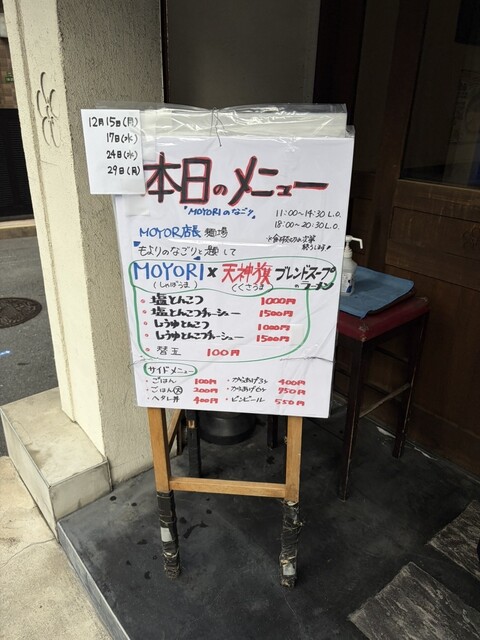 12月15日(月)
17日(水)
24日(水)
29日(月)
本日のメニュー
"MOYORIのなごり"
11:00〜14:30 L.O.
18:00〜20:30 L.O.
MOYORI店長 麺場
"もよりのなごりと題して"
MOYORI × 天神旗 ブレンドスープ
のラーメン
・塩とんこつ 1000円
・塩とんこつチャーシュー 1500円
・しょうゆとんこつ 1000円
・しょうゆとんこつチャーシュー 1500円
・替玉 100円
サイドメニュー
・ごはん 100円
・ごはん(大) 200円
・ヘタレ丼 400円
・からあげ3ヶ 400円
・からあげ6ヶ 750円
・ビンビール 550円